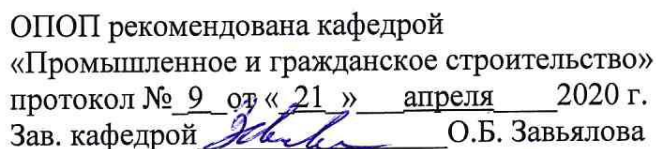 ОПОП рекомендована кафедрой
«Промышленное и гражданское строительство»
протокол № 9 от « 21 » апреля 2020 г.
Зав. кафедрой О.Б. Завьялова